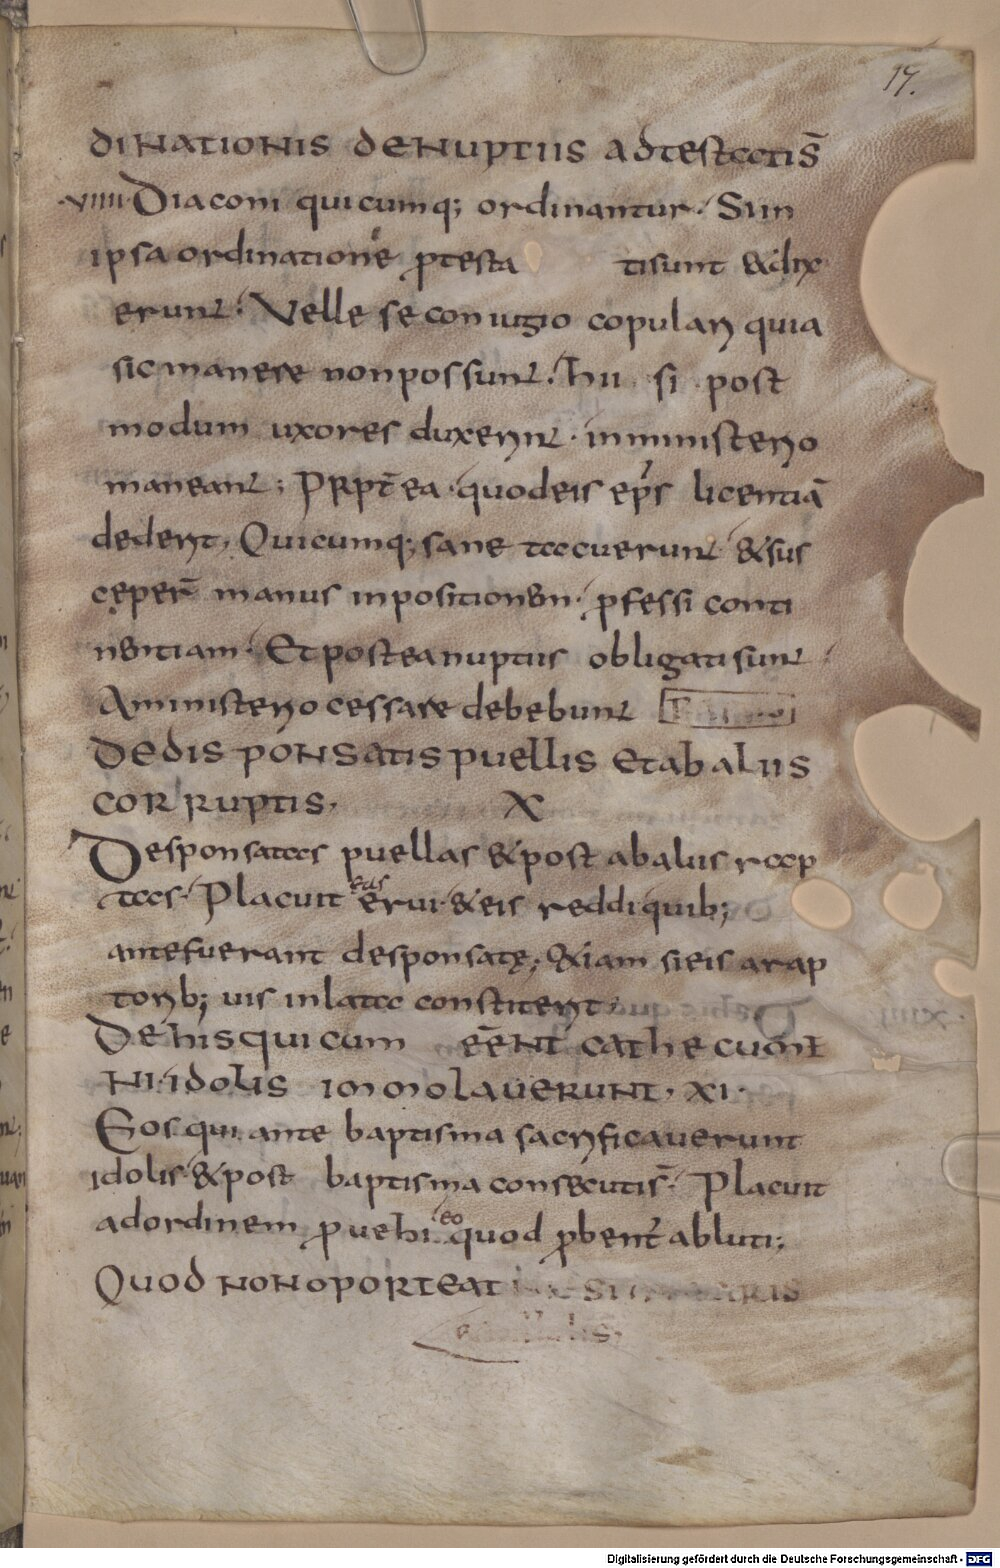 17.
DINATIONIS DE NUPTIIS ADTESTATIS̄
·VIIII· Diaconi quicumq; ordinantur. Si in
ipsa ordinatione ꝓtesta tisunt & dix
erunt. Velle se coniugio copulari quia
sic manere non possunt. hii si post
modum uxores duxerint. in ministerio
maneant; Prpt̄ea. quod eis ep̄s licentiā
dederit, Quicumq; sane tacuerunt & sus
ceper̄ manus inpositionem. ꝓfessi conti
nentiam. Et postea nuptiis obligati sunt
A ministerio cessare debebunt
DE DISPONSATIS PUELLIS ET AB ALIIS
CORRUPTIS. X
Desponsatas puellas & post ab aliis rap
tas. Placuit eas erui. & eis reddi quib;
ante fuerant desponsatę; &iam si eis a rap
torib; uis inlata constiterit.
DE HIS QUI CUM EĒNT CATHECUMI
NI. IDOLIS IMMOLAVERUNT. XI.
Eos qui ante baptisma sacrificauerunt
idolis. & post baptisma consecuti s̄. Placuit
ad ordinem ꝓuehi. eo quod ꝓbent̄ abluti;
QUOD NON OPORTEAT
Digitalisierung gefördert durch die Deutsche Forschungsgemeinschaft - DFG